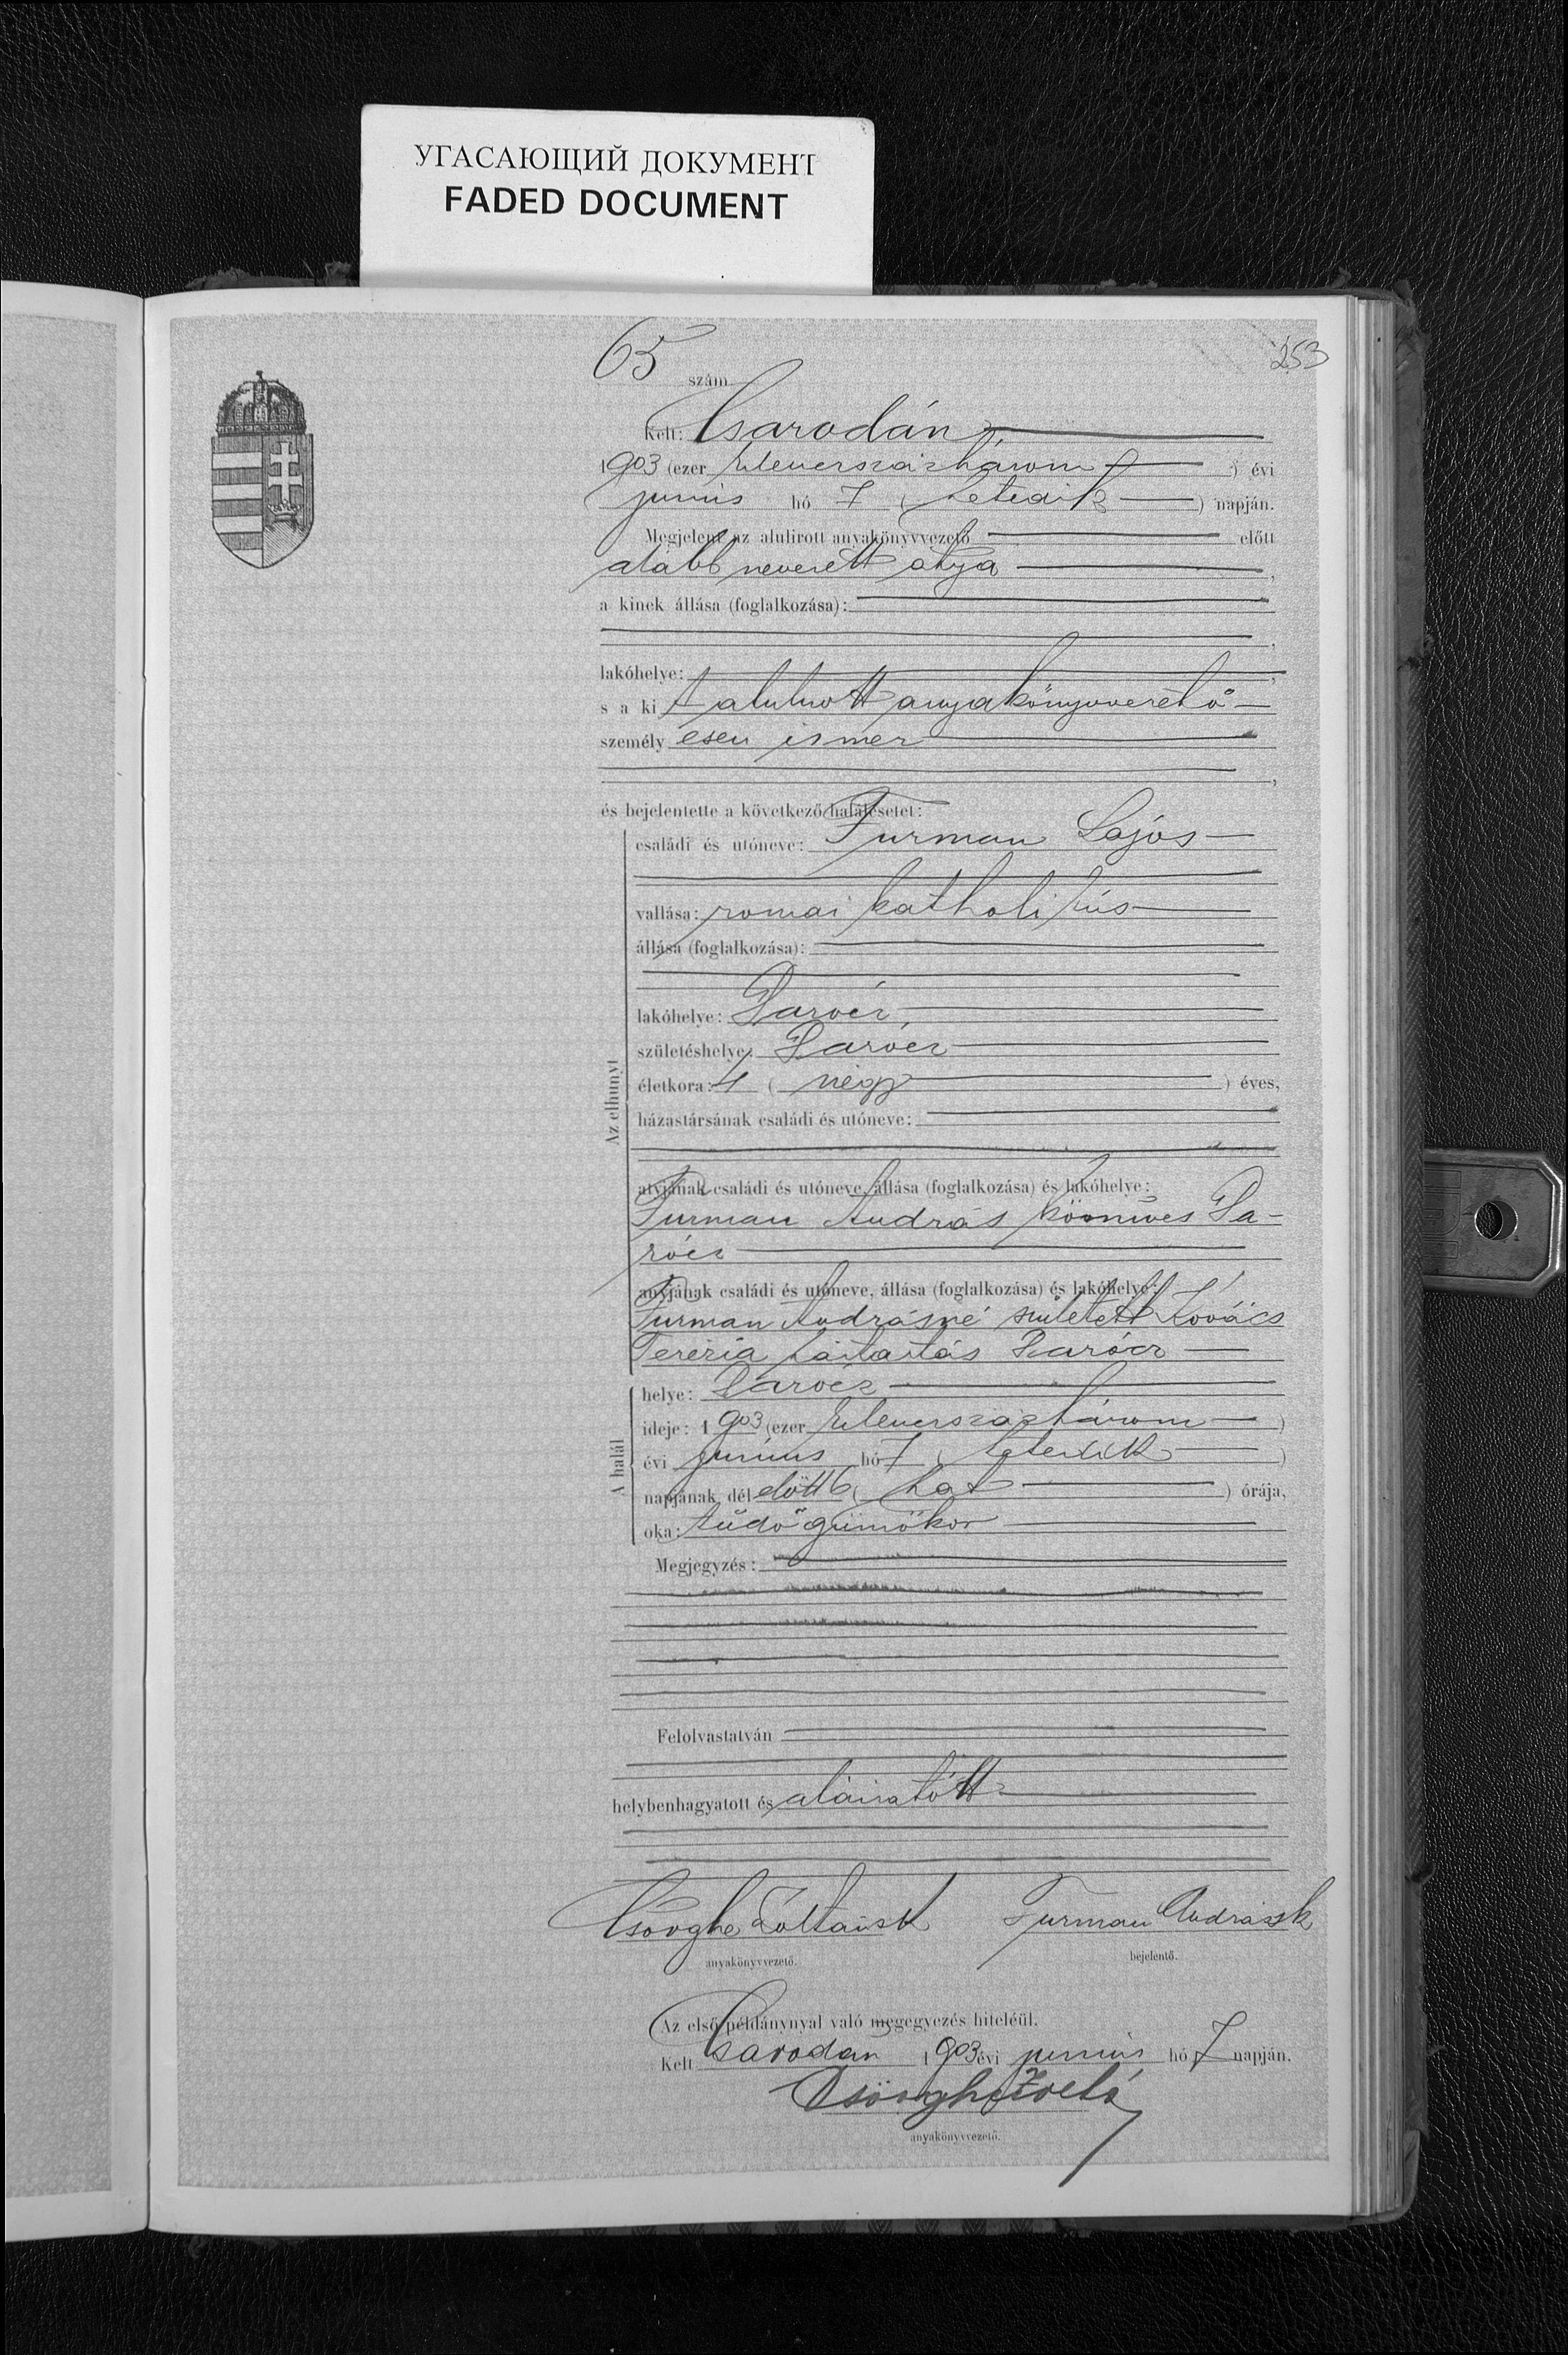 УГАСАЮЩИЙ ДОКУМЕНТ
FADED DOCUMENT
253
65 szám
Kelt: Csarodán,
1903 (ezer kilenczszázhárom) évi
junius hó 7 (hetedik) napján.
Megjelent az alulirott anyakönyvvezető előtt
alább nevezett atya,
a kinek állása (foglalkozása):
lakóhelye:
s a kit alulirott anyakönyvvezető
személyesen ismer
és bejelentette a következő halálesetet:
Az elhunyt
családi és utóneve: Furman Lajos
vallása: romai katholikus
állása (foglalkozása):
lakóhelye: Darócz
születéshelye: Darócz
életkora: 4 (négy) éves,
házastársának családi és utóneve:
atyjának családi és utóneve, állása (foglalkozása) és lakóhelye:
Furman András kőmives Da-
rócz
anyjának családi és utóneve, állása (foglalkozása) és lakóhelye:
Furman Andrásné született Kovács
Terézia háztartás Darócz
A halál
helye: Darócz
ideje: 1903 (ezer kilenczszázhárom)
évi junius hó 7 (hetedik)
napjának dél előtt 6 (hat) órája,
oka: tüdő gümőkor
Megjegyzés:
Felolvastatván
helybenhagyatott és aláiratott
Csörghe Zoltán sk Furman András sk
anyakönyvvezető. bejelentő.
Az első példánynyal való megegyezés hiteléül.
Kelt Csarodán 1903 évi junius hó 7 napján.
Csörghe
anyakönyvvezető.